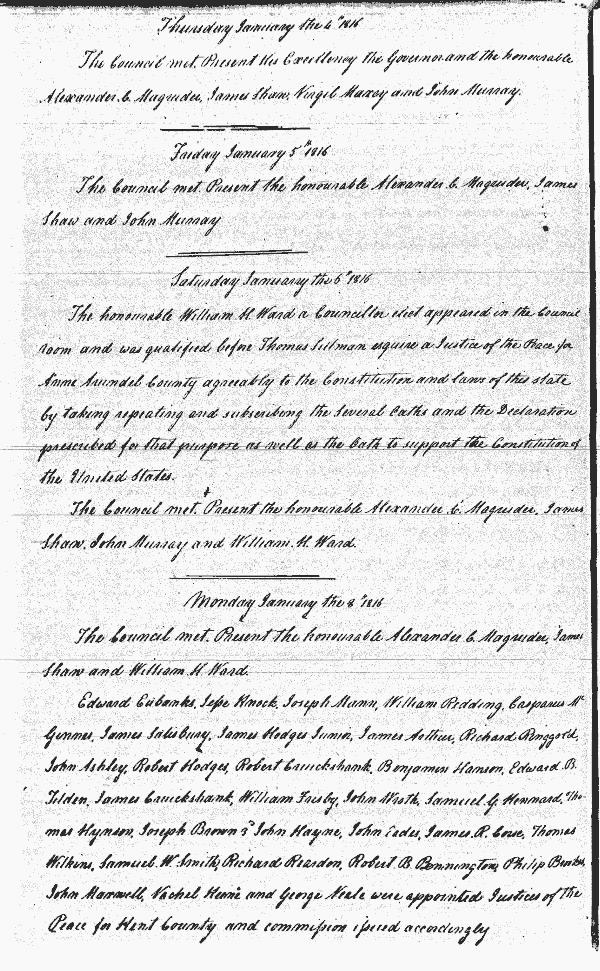 Thursday January the 4th 1816
The Council met. Present His Excellency the Governor and the honourable
Alexander C. Magruder, James Shaw, Virgil Maxcy and John Murray.
Friday January 5th 1816
The Council met. Present the honourable Alexander C. Magruder, James
Shaw and John Murray
Saturday January the 6th 1816
The honourable William H. Ward a Councillor elect appeared in the Council
room and was qualified before Thomas Sellman esquire a Justice of the Peace for
Anne Arundel County agreeably to the Constitution and laws of this state
by taking repeating and subscribing the several Oaths and the Declaration
prescribed for that purpose as well as the Oath to support the Constitution of
the United States.
The Council met. Present the honourable Alexander C. Magruder, James
Shaw, John Murray and William H. Ward.
Monday January the 8th 1816
The Council met. Present the honourable Alexander C. Magruder, James
Shaw and William H Ward.
Edward Eubanks, Jesse Knock, Joseph Mann, William Redding, Casparus Mc
Ginnes, James Salsbury, James Hodges Junior, James Arthur, Richard Ringgold,
John Ashley, Robert Hodges, Robert Cruickshank, Benjamin Hanson, Edward B.
Tilden, James Cruickshank, William Frisby, John Wroth, Samuel G. Tho-
mas Hynson, Joseph Brown 3d John Hayne, John Eades, James. R. Thomas
Wilkins, Samuel. W. Smith, Richard Reardon, Robert B Pennington, Philip Brooks,
John Maxwell, Vachel Keene and George Neale were appointed Justices of the
Peace for Kent County and commission issued accordingly